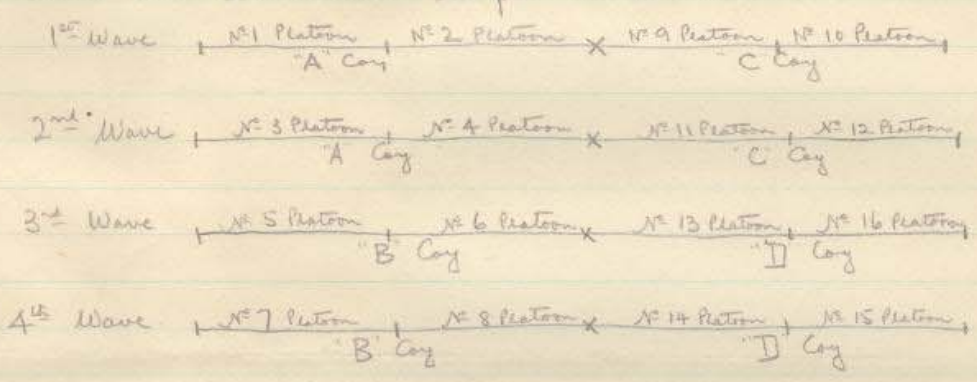 1st Wave No 1 Platoon No 2 Platoon No 9 Platoon No 10 Platoon
"A" Coy "C" Coy
2nd Wave No 3 Platoon No 4 Platoon No 11 Platoon No 12 Platoon
"A" Coy "C" Coy
3rd Wave No 5 Platoon No 6 Platoon No 13 Platoon No 16 Platoon
"B" Coy "D" Coy
4th Wave No 7 Platoon No 8 Platoon No 14 Platoon No 15 Platoon
"B" Coy "D" Coy